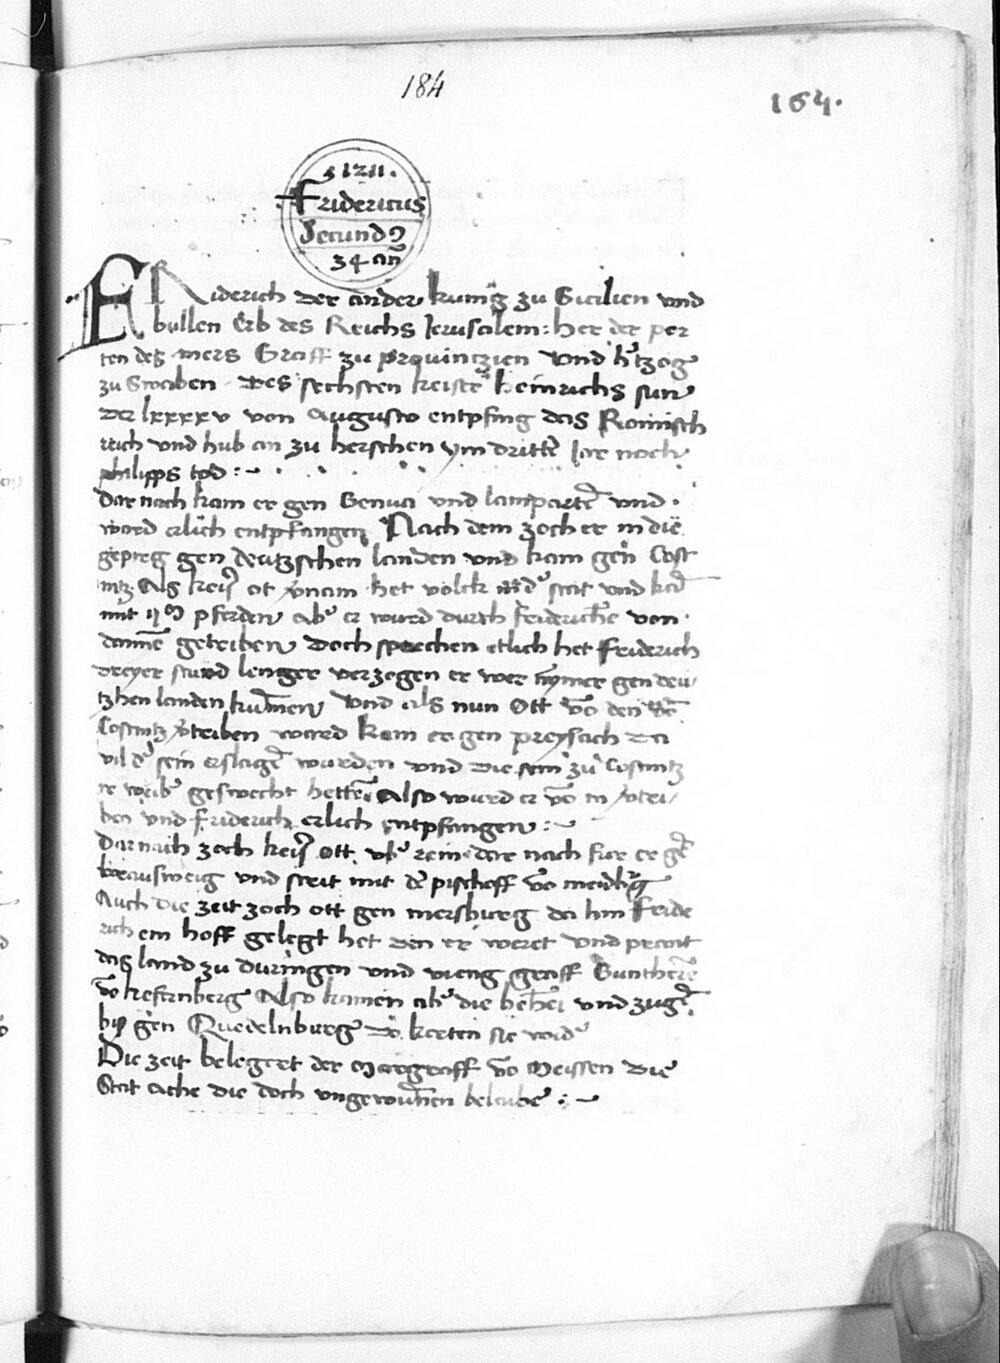 184
164.
1211.
Fridericus
Secund9
34 an̄
FRiderich der ander kunig zu Sicilien vnd
bullen Erb des Reichs Jerusalem: her der por
ten des mers Graff zu prouintzien vnd h'tzog
zu Swaben des sechsten keisers heinrichs sun
Der lxxxxv von Augusto entpfing das Romisch
reich vnd hub an zu herschen ym dritte Jar noch
philipps tod :~
Dar nach kam er gen Genua vnd lamparte vnd
ward erlich entpfangen Nach dem zoch er in die
gepreg gen deutzschen landen vnd kam gen Cost
nitz Als keis' ot het volck in d' stat vnd
mit pferden Ab' er ward durch friderich von
danne getriben Doch sprechen etlich het Friderich
dreyer stund lenger verzogen er wer nymer gen deu
tzhen landen kumen Vnd als nun Ott vo den
Costnitz v'triben ward kam er gen preysach da
vil d' sein erslage wurden vnd die sein zu Costnitz
ir weib' geswecht hetten Also ward er vo in v'trei
ben vnd friderich erlich entpfangen :~
Dar nach zoch keis' Ott vb' rein dar nach fur er ge
braunsweig vnd streit mit de pischoff vo meidburg
Auch die zeit zoch ott gen mersburg da hin fride
rich ein hoff gelegt het den er weret vnd prant
das land zu duringen vnd vieng graff Gunthere
vo kefernberg Also kamen ab' die behei vnd zuge
biß gen Quedelnburg do kerten sie wid'
Die zeit belegert der Margraff vo Meissen die
Stat Ache die doch vngewunen beleube :~